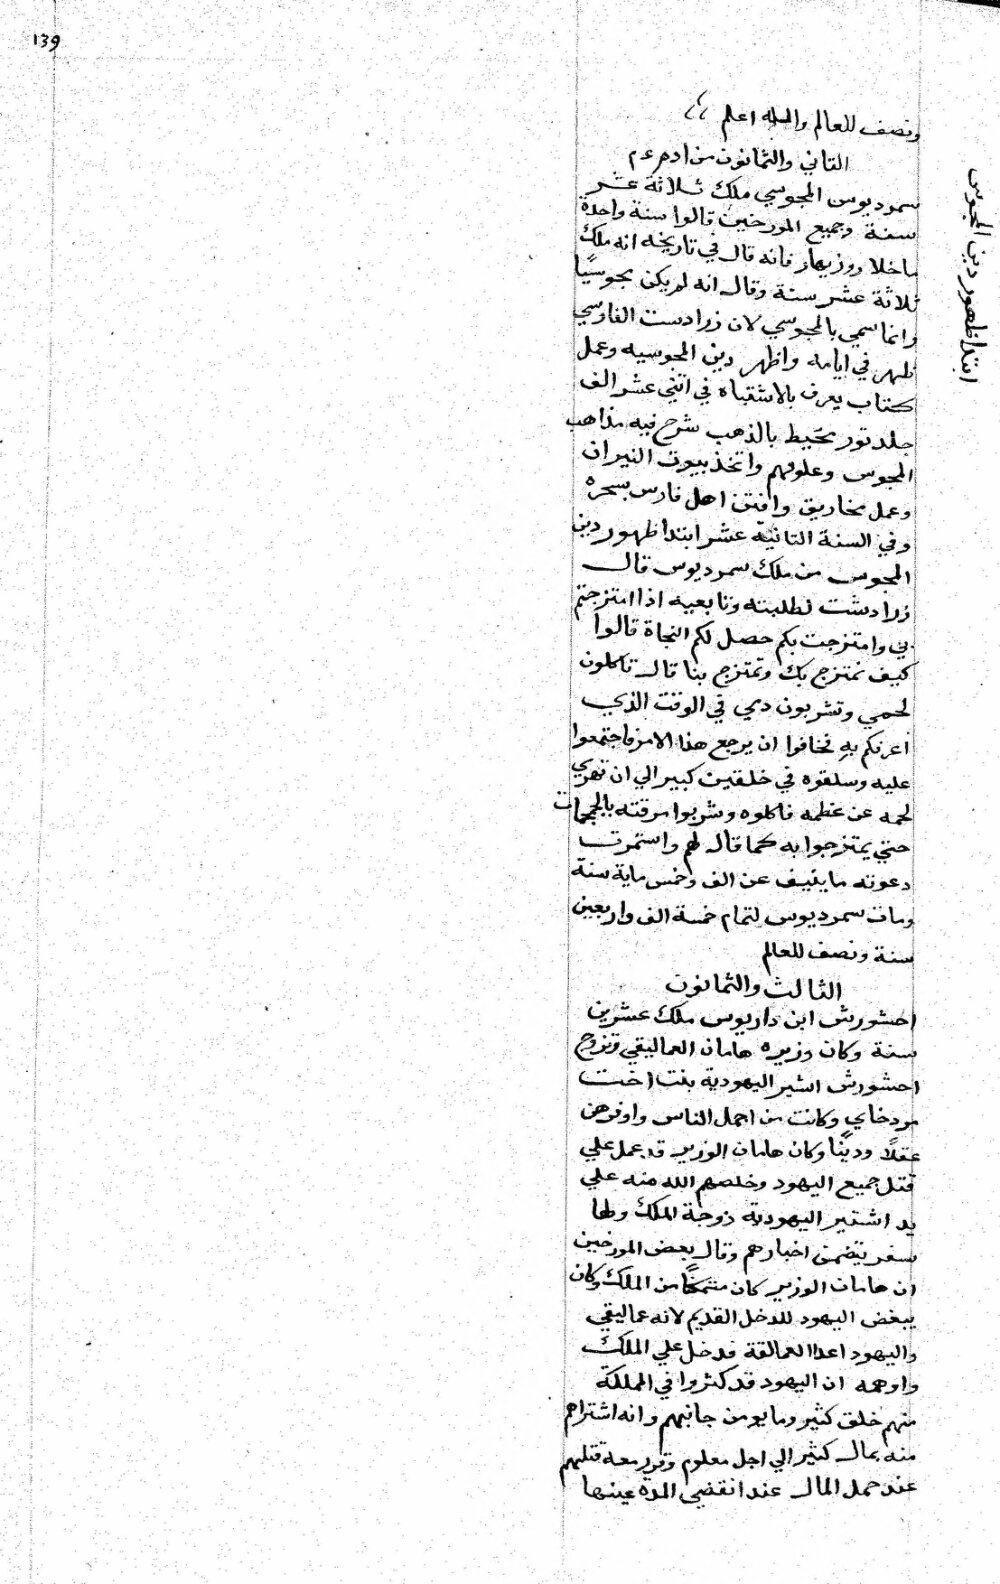 139
ونصف للعالم والله اعلم
الثاني والثمانون من ادم ع م
سمرديوس المجوسي ملك ثلاثة عشر
سنة وجميع المورخين قالوا سنة واحدة
ماخلا روزبهار فانه قال في تاريخه انه ملك
ثلاثة عشر سنة وقال انه لم يكن مجوسيًا
وانما سمي بالمجوسي لان زرادست الفارسي
ظهر في ايامه واظهر دين المجوسيه وعمل
كتاب يعرف بالاشتباه في اثني عشر الف
جلد ثور مخيط بالذهب شرح فيه مذاهب
المجوس وعلومهم واتخذ بيوت النيران
وعمل مخاريق وافتتن اهل فارس بسحره
وفي السنة الثانية عشر ابتدا ظهور دين
المجوس من ملك سمرديوس قال
زرادشت لطلبته وتابعيه اذا امتزجتم
بي وامتزجت بكم حصل لكم النجاة قالوا
كيف نمتزج بك وتمتزج بنا قال تاكلون
لحمي وتشربون دمي في الوقت الذي
اعرفكم به فخافوا ان يرجع هذا الامر فاجتمعوا
عليه وسلقوه في خلقين كبير الي ان تهري
لحمه عن عظمه فاكلوه وشربوا مرقته بالجمجمات
حتي يمتزجوا به كما قال لهم واستمرت
دعوته ما ينيف عن الف وخمس ماية سنة
ومات سمرديوس لتمام خمسة الف واربعين
سنة ونصف للعالم
الثالث والثمانون
احشورش ابن داريوس ملك عشرين
سنة وكان وزيره هامان العماليقي وتزوج
احشورش استير اليهودية بنت اخت
مردخاي وكانت من اجمل الناس واوفرهن
عقلًا ودينًا وكان هامان الوزير قد عمل علي
قتل جميع اليهود وخلصهم الله منه علي
يد اشتير اليهودية زوجة الملك ولها
سفر يتضمن اخبارهم وقال بعض المورخين
ان هامان الوزير كان متمكنًا من الملك وكان
يبغض اليهود للدخل القديم لانه عماليقي
واليهود اعدا العمالقة فدخل علي الملك
واوهمه ان اليهود قد كثروا في المملكة
منهم خلق كثير وما يومن جانبهم وانه اشتراهم
منه بمال كثير الي اجل معلوم وقرر معه قتلهم
عند حمل المال عند انقضي المدة عينها
ابتدا ظهور دين المجوس